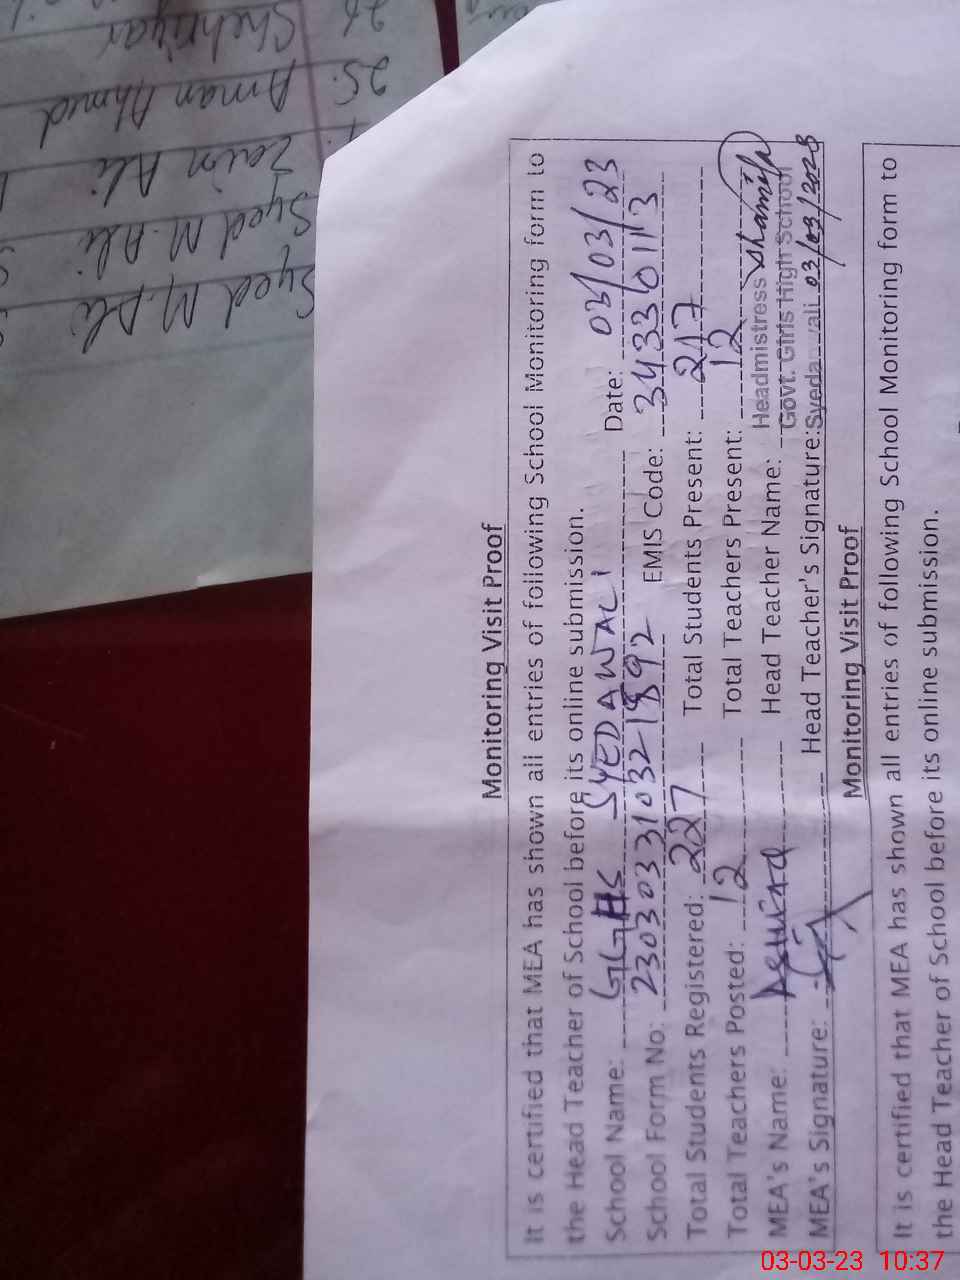 Monitoring Visit Proof
It is certified that MEA has shown all entries of following School Monitoring form to
the Head Teacher of School before its online submission.
School Name: GGHS SYEDAWALI Date: 03/03/23
School Form No: 230303310321892 EMIS Code: 34330113
Total Students Registered: 227 Total Students Present: 217
Total Teachers Posted: 12 Total Teachers Present: 12
MEA's Name: Head Teacher Name: Shamifa
Headmistress
Govt. Girls High School
MEA's Signature: Head Teacher's Signature: 03/03/2023
Monitoring Visit Proof
It is certified that MEA has shown all entries of following School Monitoring form to
the Head Teacher of School before its online submission.
Syed M. Ali
Syed M. Ali
Zain Ali
25. Aman Ahmed
26 Shehriyar
03-03-23 10:37